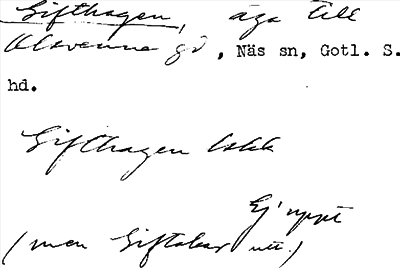 Gifthagen, äga till
Olsvenne gd, Näs sn, Gotl. S.
hd.
Gifthagen lskk
Ej uppt
(men Giftakar utt.)